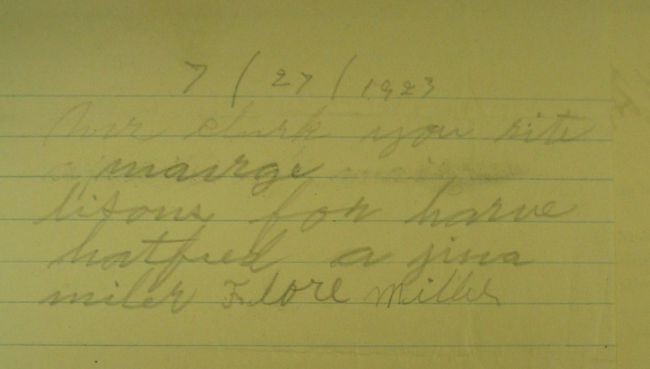 7/27/1923
Mr clurk you rite
a maurge
lisons for harve
hatfeed a jina
miler Flore Miller